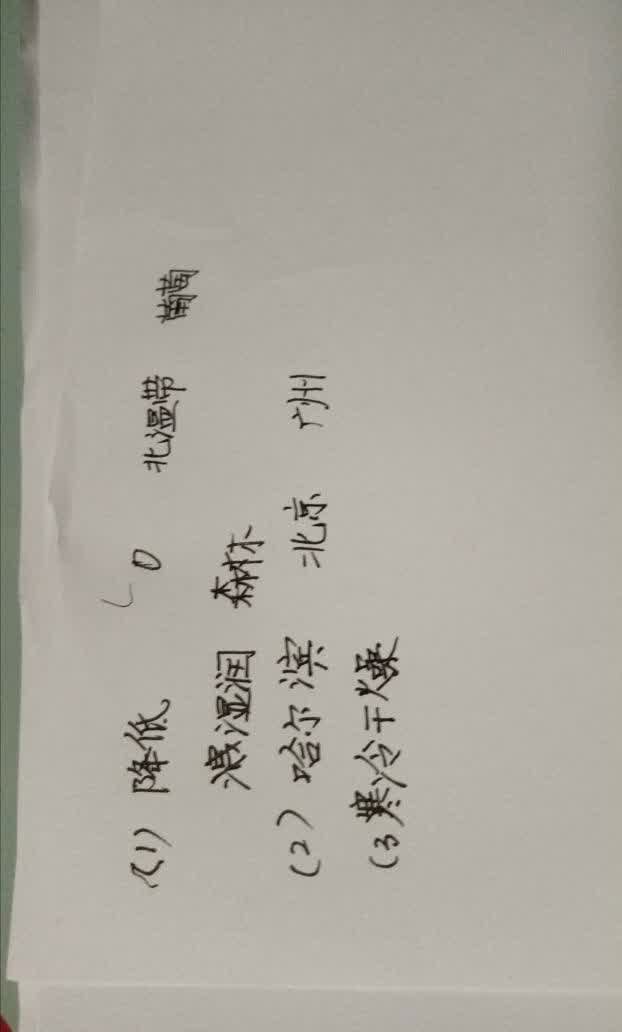 (1) 降低 0 北温带 葡萄
湿润 森林
(2) 哈尔滨 北京 广州
(3 寒冷干燥